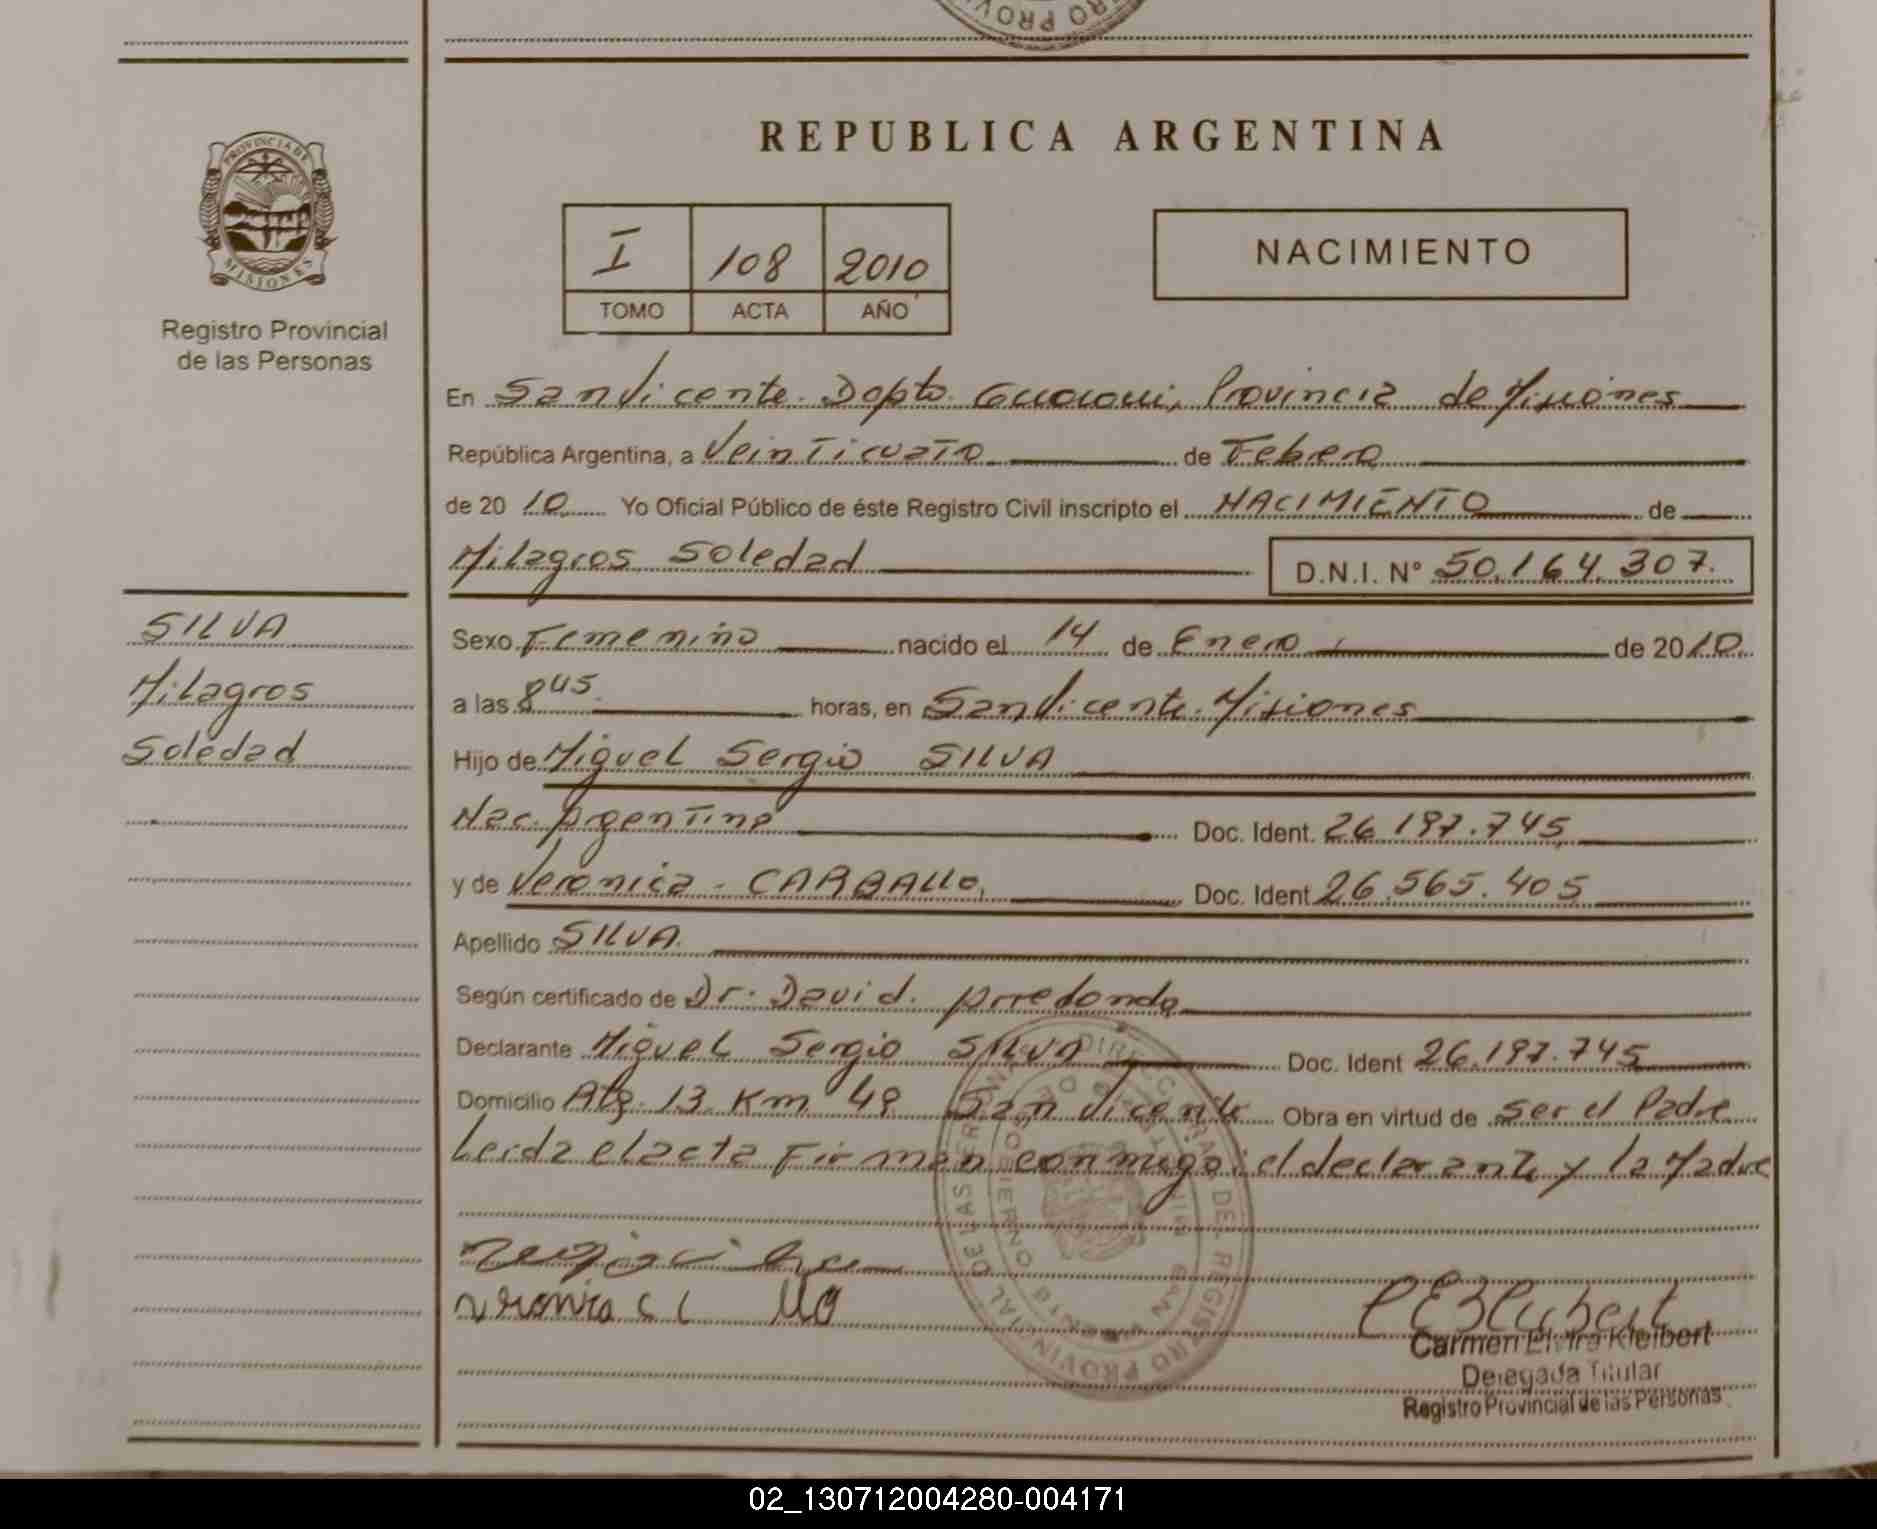 REPUBLICA ARGENTINA
PROVINCIA DE
MISIONES
Registro Provincial
de las Personas
I 108 2010
TOMO ACTA AÑO
NACIMIENTO
En San Vicente. Dapto. Guarani, Provincia de Misiones
República Argentina, a Veinticuatro de Febrero
de 2010 Yo Oficial Público de éste Registro Civil inscripto el NACIMIENTO de
Milagros Soledad D.N.I. N° 50.164.307.
SILVA
Milagros
Soledad
Sexo Femenino nacido el 14 de Enero de 2010
a las 8 45 horas, en San Vicente. Misiones
Hijo de Miguel Sergio SILVA
Nac. Argentina Doc. Ident. 26.197.745
y de Veronica - CARBALLO, Doc. Ident 26.565.405
Apellido SILVA.
Según certificado de Dr. David. Arredondo
Declarante Miguel Sergio SILVA Doc. Ident 26.197.745
Domicilio 13 Km 48 San Vicente Obra en virtud de ser el Padre
Leida el acta Firman conmigo: el declarante y la Madre
Carmen Elvira Kleibert
Delegada Titular
Registro Provincial de las Personas
02_130712004280-004171